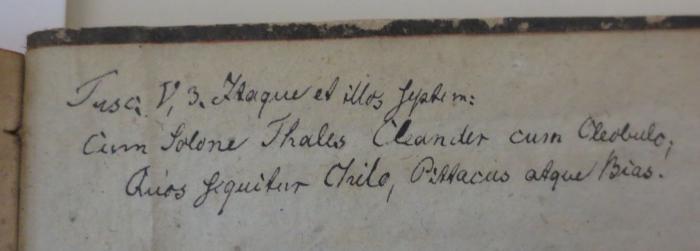 Tusc. V, 3. Itaque et illos septem:
Cum Solone Thales Cleander cum Cleobulo,
Quos sequitur Chilo, Pittacus atque Bias.